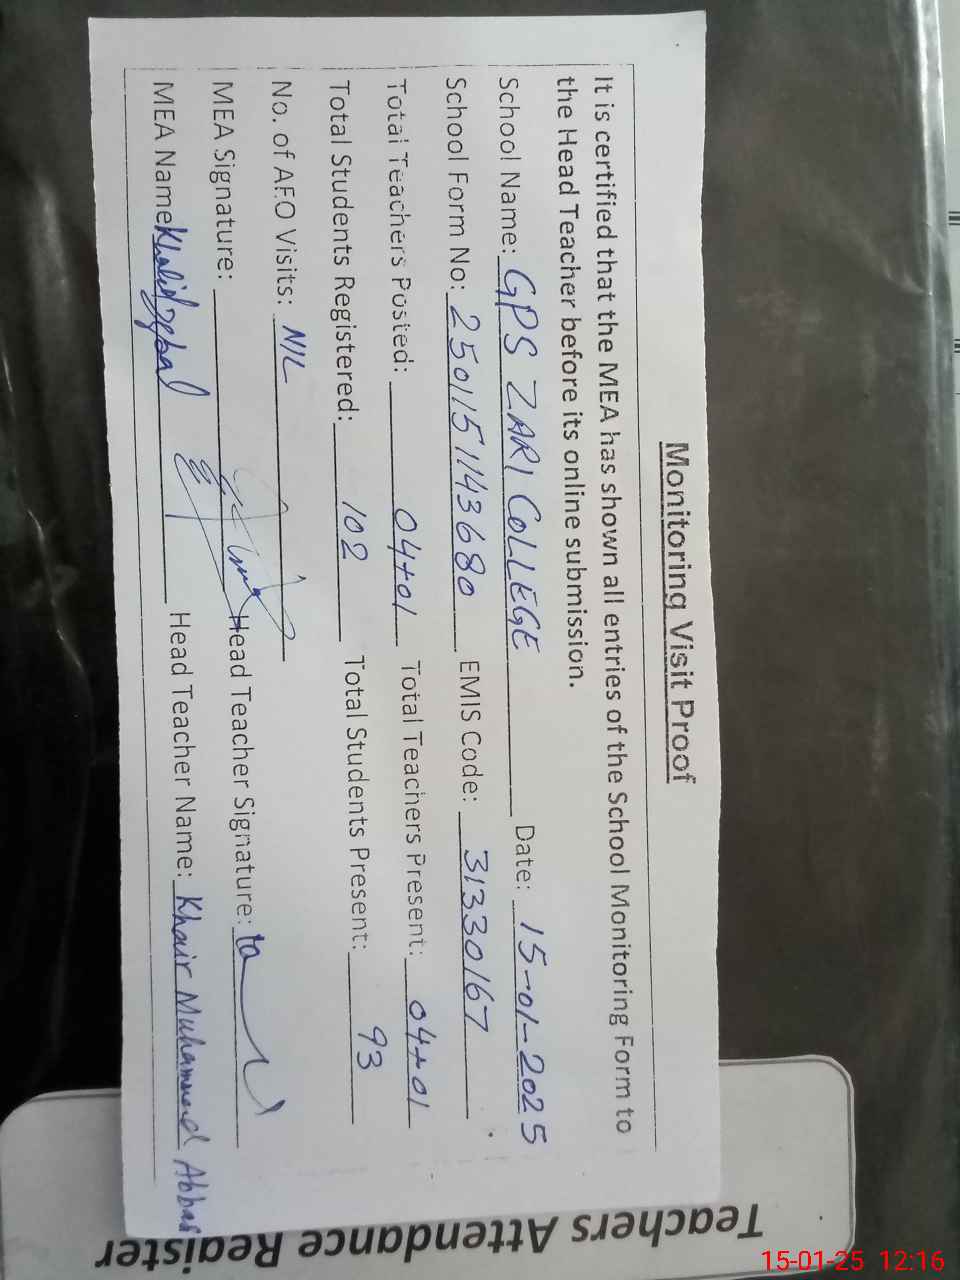 Monitoring Visit Proof
It is certified that the MEA has shown all entries of the School Monitoring Form to
the Head Teacher before its online submission.
School Name: GPS ZARI COLLEGE Date: 15-01-2025
School Form No: 2501151143680 EMIS Code: 31330167
Total Teachers Posted: 04+01 Total Teachers Present: 04+01
Total Students Registered: 102 Total Students Present: 93
No. of AEO Visits: NIL
MEA Signature: Head Teacher Signature:
MEA Name: Khalid Iqbal Head Teacher Name: Khair Muhammad Abbas
Teachers Attendance Register
15-01-25 12:16